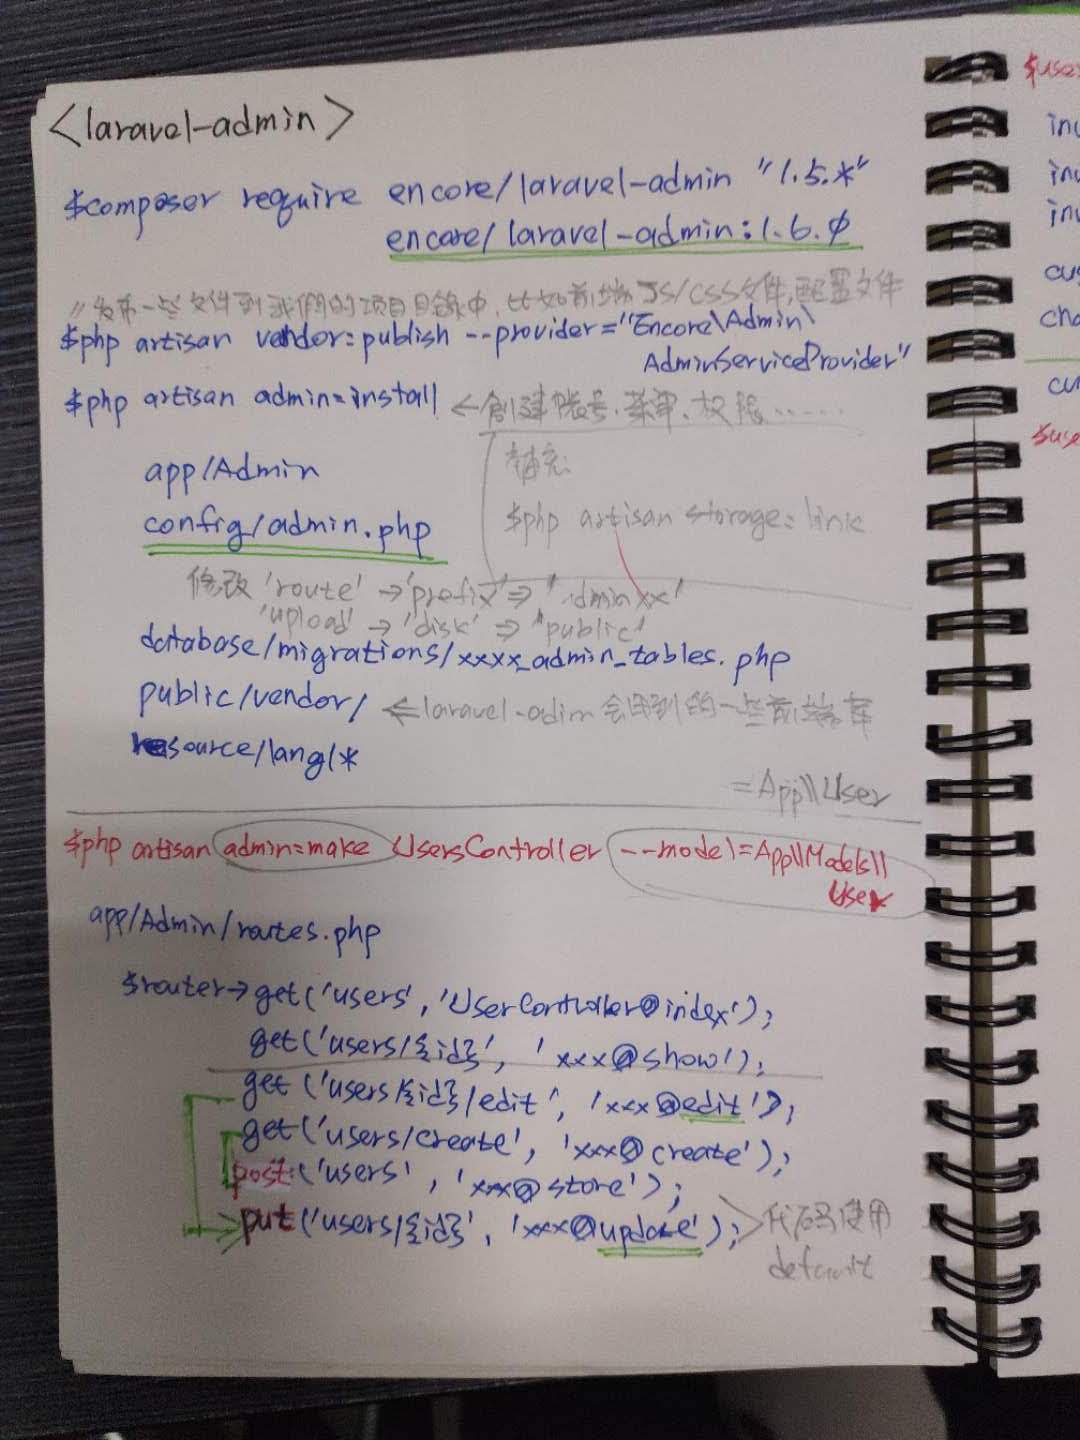 <laravel-admin>
$composer require encore/laravel-admin "1.5.*"
encore/laravel-admin:1.6.0
//发布一些文件到我们的项目目录中,比如前端JS/CSS文件,配置文件
$php artisan vendor:publish --provider="Encore\Admin\
AdminServiceProvider"
$php artisan admin:install ←创建账号、菜单、权限......
补充:
app/Admin
$php artisan storage:link
config/admin.php
修改 'route' → 'prefix' ⇒ 'adminxx'
'upload' → 'disk' ⇒ 'public'
database/migrations/xxxx_admin_tables.php
public/vendor/ ⇐laravel-adim 会用到的一些前端库
resource/lang/*
=App\\User
$php artisan admin:make UsersController --model=App\\Models\\
User
app/Admin/routes.php
$router→get('users', 'UserController@index');
get('users/{id}', 'xxx@show');
get('users/{id}/edit', 'xxx@edit');
get('users/create', 'xxx@create');
post('users', 'xxx@store');
put('users/{id}', 'xxx@update');
代码使用
default
$use
inc
inc
inc
cus
cha
cu
$use